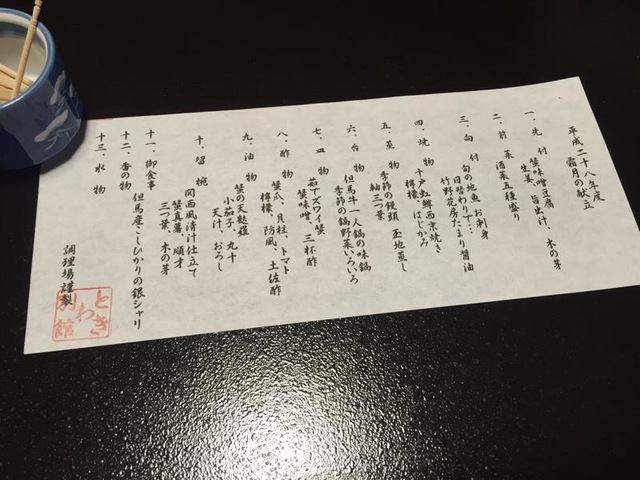 平成二十八年度
霜月の献立
一、先 付 蟹味噌豆腐
生姜、旨出汁、木の芽
二、前 菜 酒菜五種盛り
三、向 付 旬の地魚 お刺身
日替わりで…
竹野花房たまり醤油
四、焼 物 十夕紅鱒西京焼き
檸檬、はじかみ
五、蒸 物 季節の饅頭 玉地蒸し
軸三つ葉
六、台 物 但馬牛一人鍋の味鍋
季節の鍋野菜いろいろ
七、皿 物 茹でズワイ蟹
蟹味噌、三杯酢
八、酢 物 蟹爪、貝柱、トマト
檸檬、防風、土佐酢
九、油 物 蟹の天麩羅
小茄子、丸十
天汁、おろし
十、留 椀 関西風清汁仕立て
蟹真薯、順才
三つ葉、木の芽
十一、御食事 但馬産こしひかりの銀シャリ
十二、香の物
十三、水 物
調理場謹製
ときわ別館